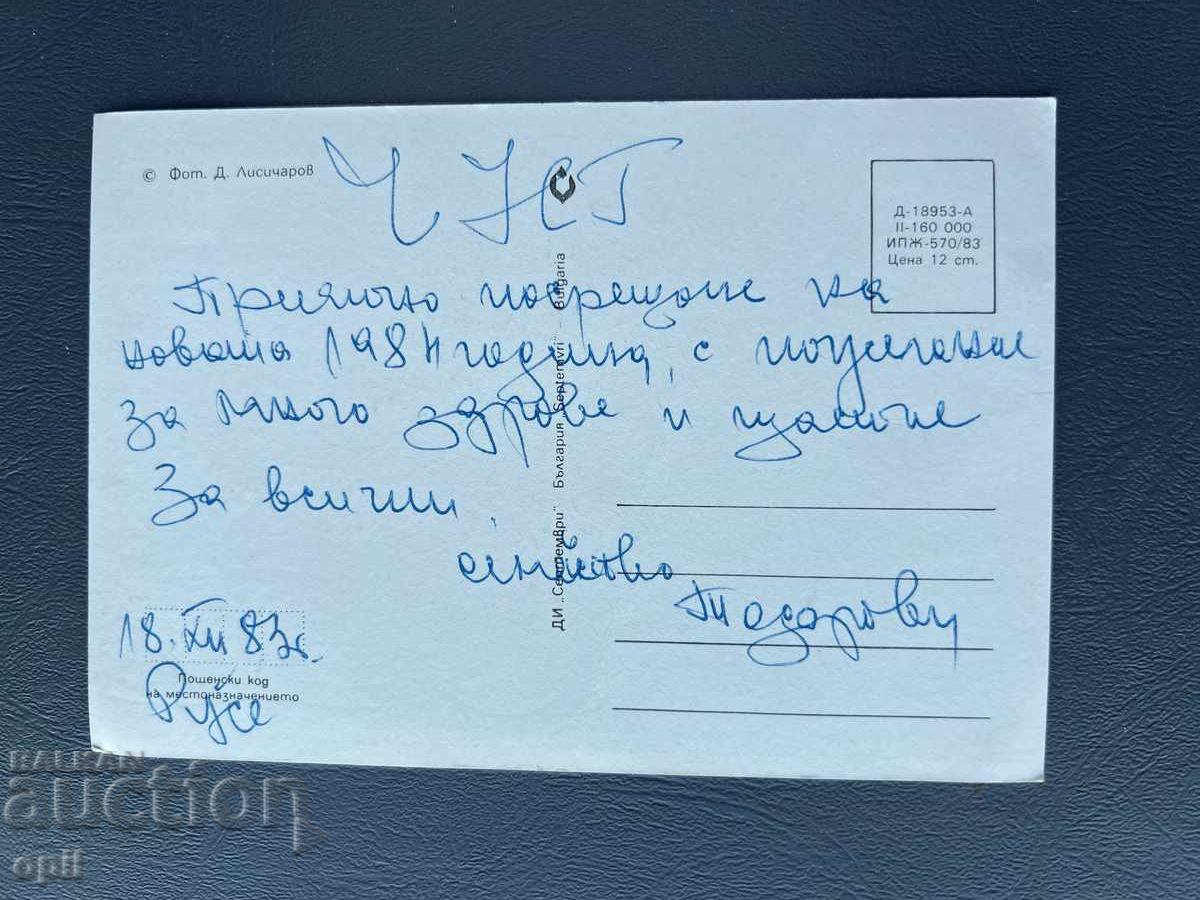 © Фот. Д. Лисичаров
ЧНГ
Д-18953-А
II-160 000
ИПЖ-570/83
Цена 12 ст.
Приятно посрещане на
новата 1984 година, с пожелание
за много здраве и щастие
За всички.
семейство
Тодорови
18.XII 83г.
Русе
Пощенски код
на местоназначението
ДИ „Септември" България „Septemvri" – Bulgaria
BALKAN
auction
opii